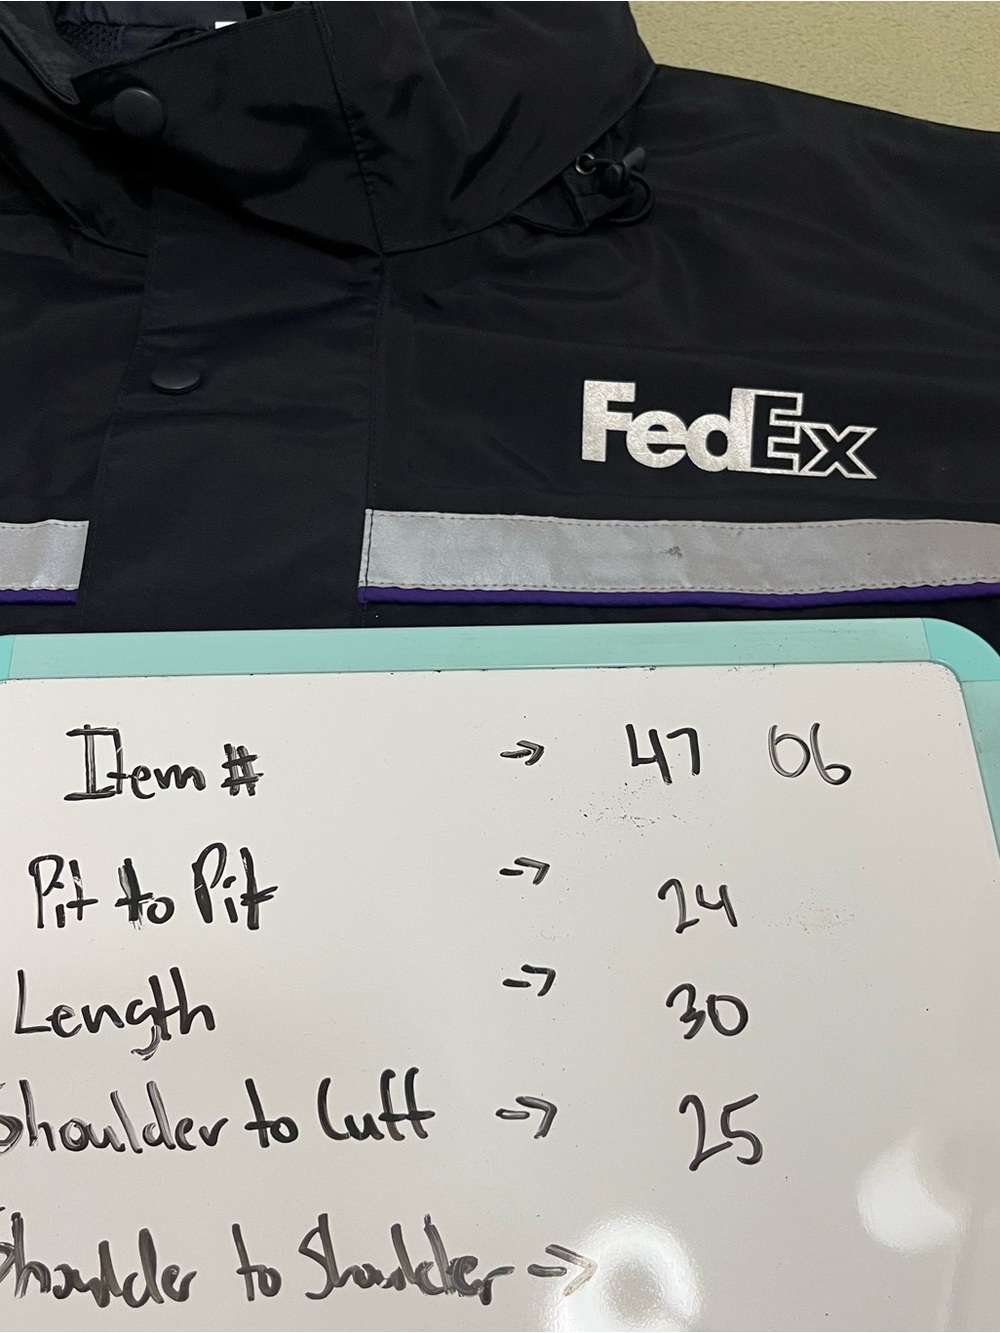 FedEx
Item # → 47 06
Pit to Pit → 24
Length → 30
Shoulder to Cuff → 25
Shoulder to Shoulder →